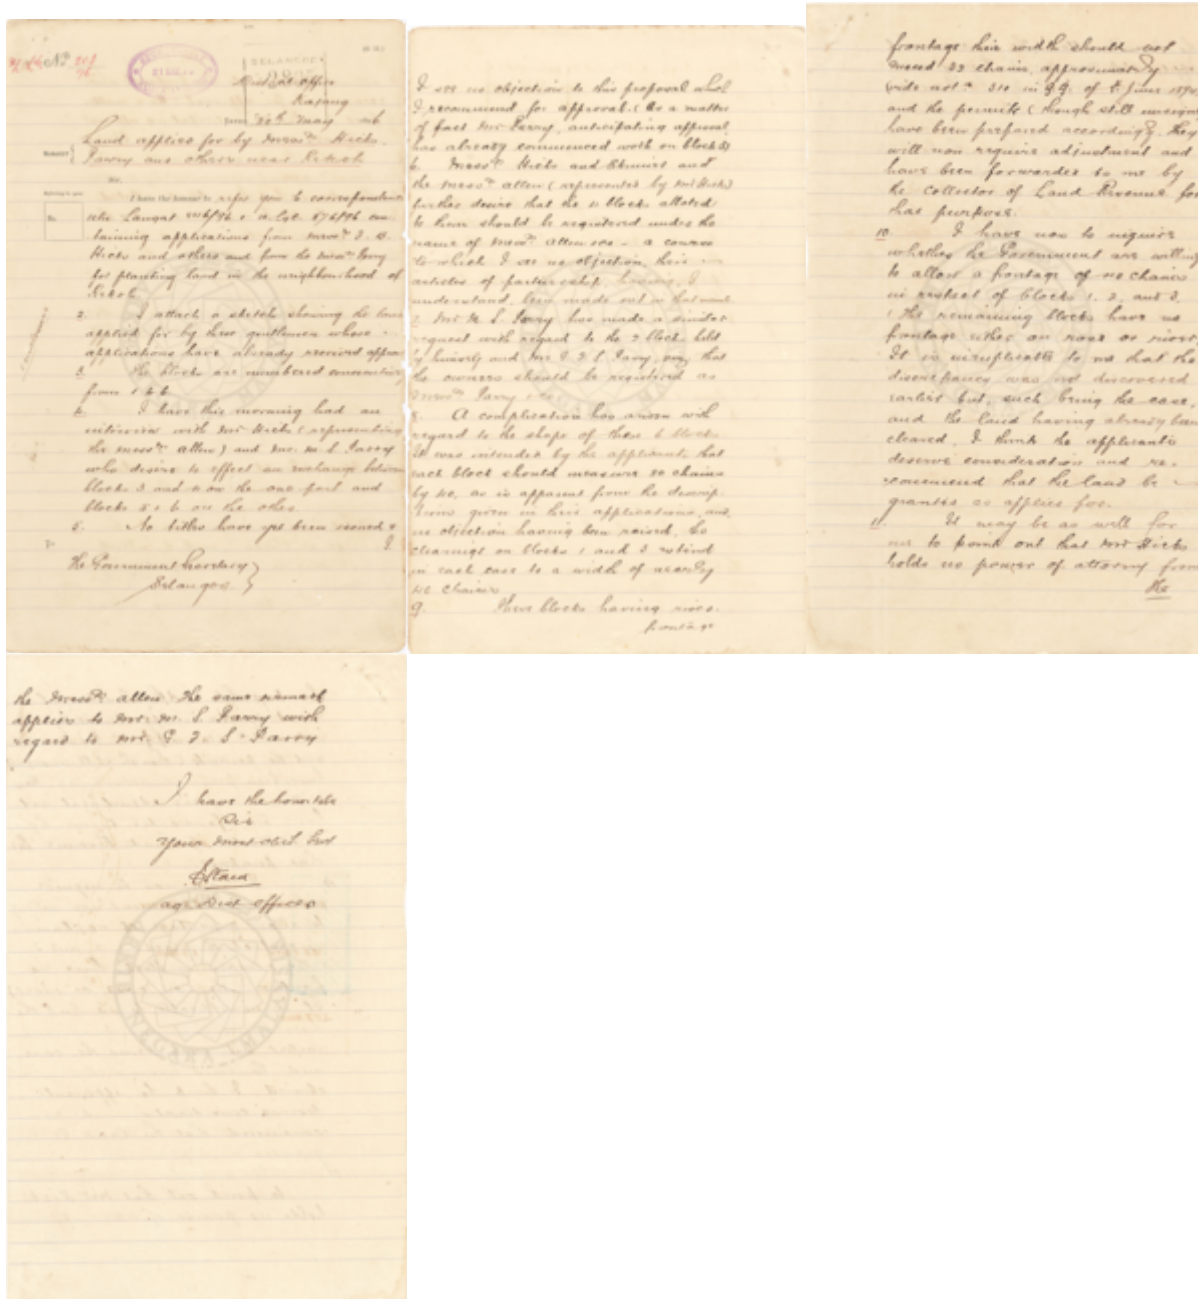 No
SELANGOR
District Office
Kajang
20th May 96
Land applied for by Messrs Hicks,
Parry and others near
Sir,
I have the honour to refer you to correspondence
Langat
taining applications from Messrs
Hicks and others and from the Messrs Parry
for planting land in the neighbourhood of
2. I attach a sketch showing the land
applied for by these gentlemen whose
applications have already received approval
3. The blocks are numbered consecutively
from 1 to 6.
4. I have this morning had an
interview with Mr Hicks (representing
the Messrs Allen) and Mr. M. S. Parry
who desire to effect an exchange between
blocks 3 and 4 on the one part and
blocks 5 & 6 on the other.
5. No titles have yet been issued &
I
The Government Secretary
Selangor
I see no objection to this proposal which
I recommend for approval. (As a matter
of fact Mr Parry, anticipating approval,
has already commenced work on block 3)
6. Messrs Hicks and and
the Messrs Allen (represented by Mr Hicks)
further desire that the 4 blocks allotted
to them should be registered under the
name of Messrs Allen - a course
to which I see no objection, their
articles of partnership having, I
understand, been made out in that name
7. Mr M. S. Parry has made a similar
request with regard to the 2 blocks held
by himself and Mr S. Parry, viz, that
the owners should be registered as
Messrs Parry
8. A complication has arisen with
regard to the shape of these 6 blocks
It was intended by the applicants that
each block should measure 40 chains
by 40, as is apparent from the descrip
tions given in their applications, and,
no objection having been raised, the
clearings on blocks 1 and 3 extend
in each case to a width of nearly
40 chains
9. These blocks having river
frontage
frontage their width should not
exceed chains, approximately
(vide not n 310 in G.G. of 5 June
and the permits (though still unsigned
have been prepared accordingly. They
will now require adjustment and
have been forwarded to me by
the Collector of Land Revenue for
that purpose.
10. I have now to inquire
whether the Government are willing
to allow a frontage of 40 chains
in respect of blocks 1, 2, and 3.
(The remaining blocks have no
frontage either on road or river)
It is inexplicable to me that the
discrepancy was not discovered
earlier but, such being the case,
and the land having already been
cleared, I think the applicants
deserve consideration and re-
commend that the land be
granted as applied for.
11. It may be as well for
me to point out that Mr Hicks
holds no power of attorney from
the
the Messrs Allen. The same remark
applies to Mr. M. S. Parry with
regard to Mr. S. Parry
I have the honour to be
Sir
Your most obdt Servt
agr Dist Officer